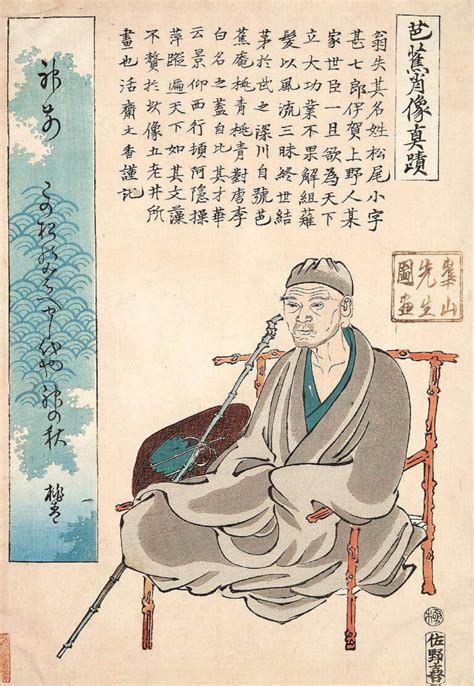 芭蕉肖像真蹟
翁失其名姓松尾小字
甚七郎伊賀上野人某
家世臣一旦欲為天下
立大功業不果解組薙
髮以風流三昧終世結
茅於武之深川自號芭
蕉庵桃青桃青對唐李
白名之蓋自比其才華
云景仰西行頓阿隠操
萍蹤遍天下如其文藻
不贅於像五老井所
畫也活齋文香謹記
崋山
先生
圖画
神前
この松のみはへせし代や神の秋
桃青
極
佐野喜